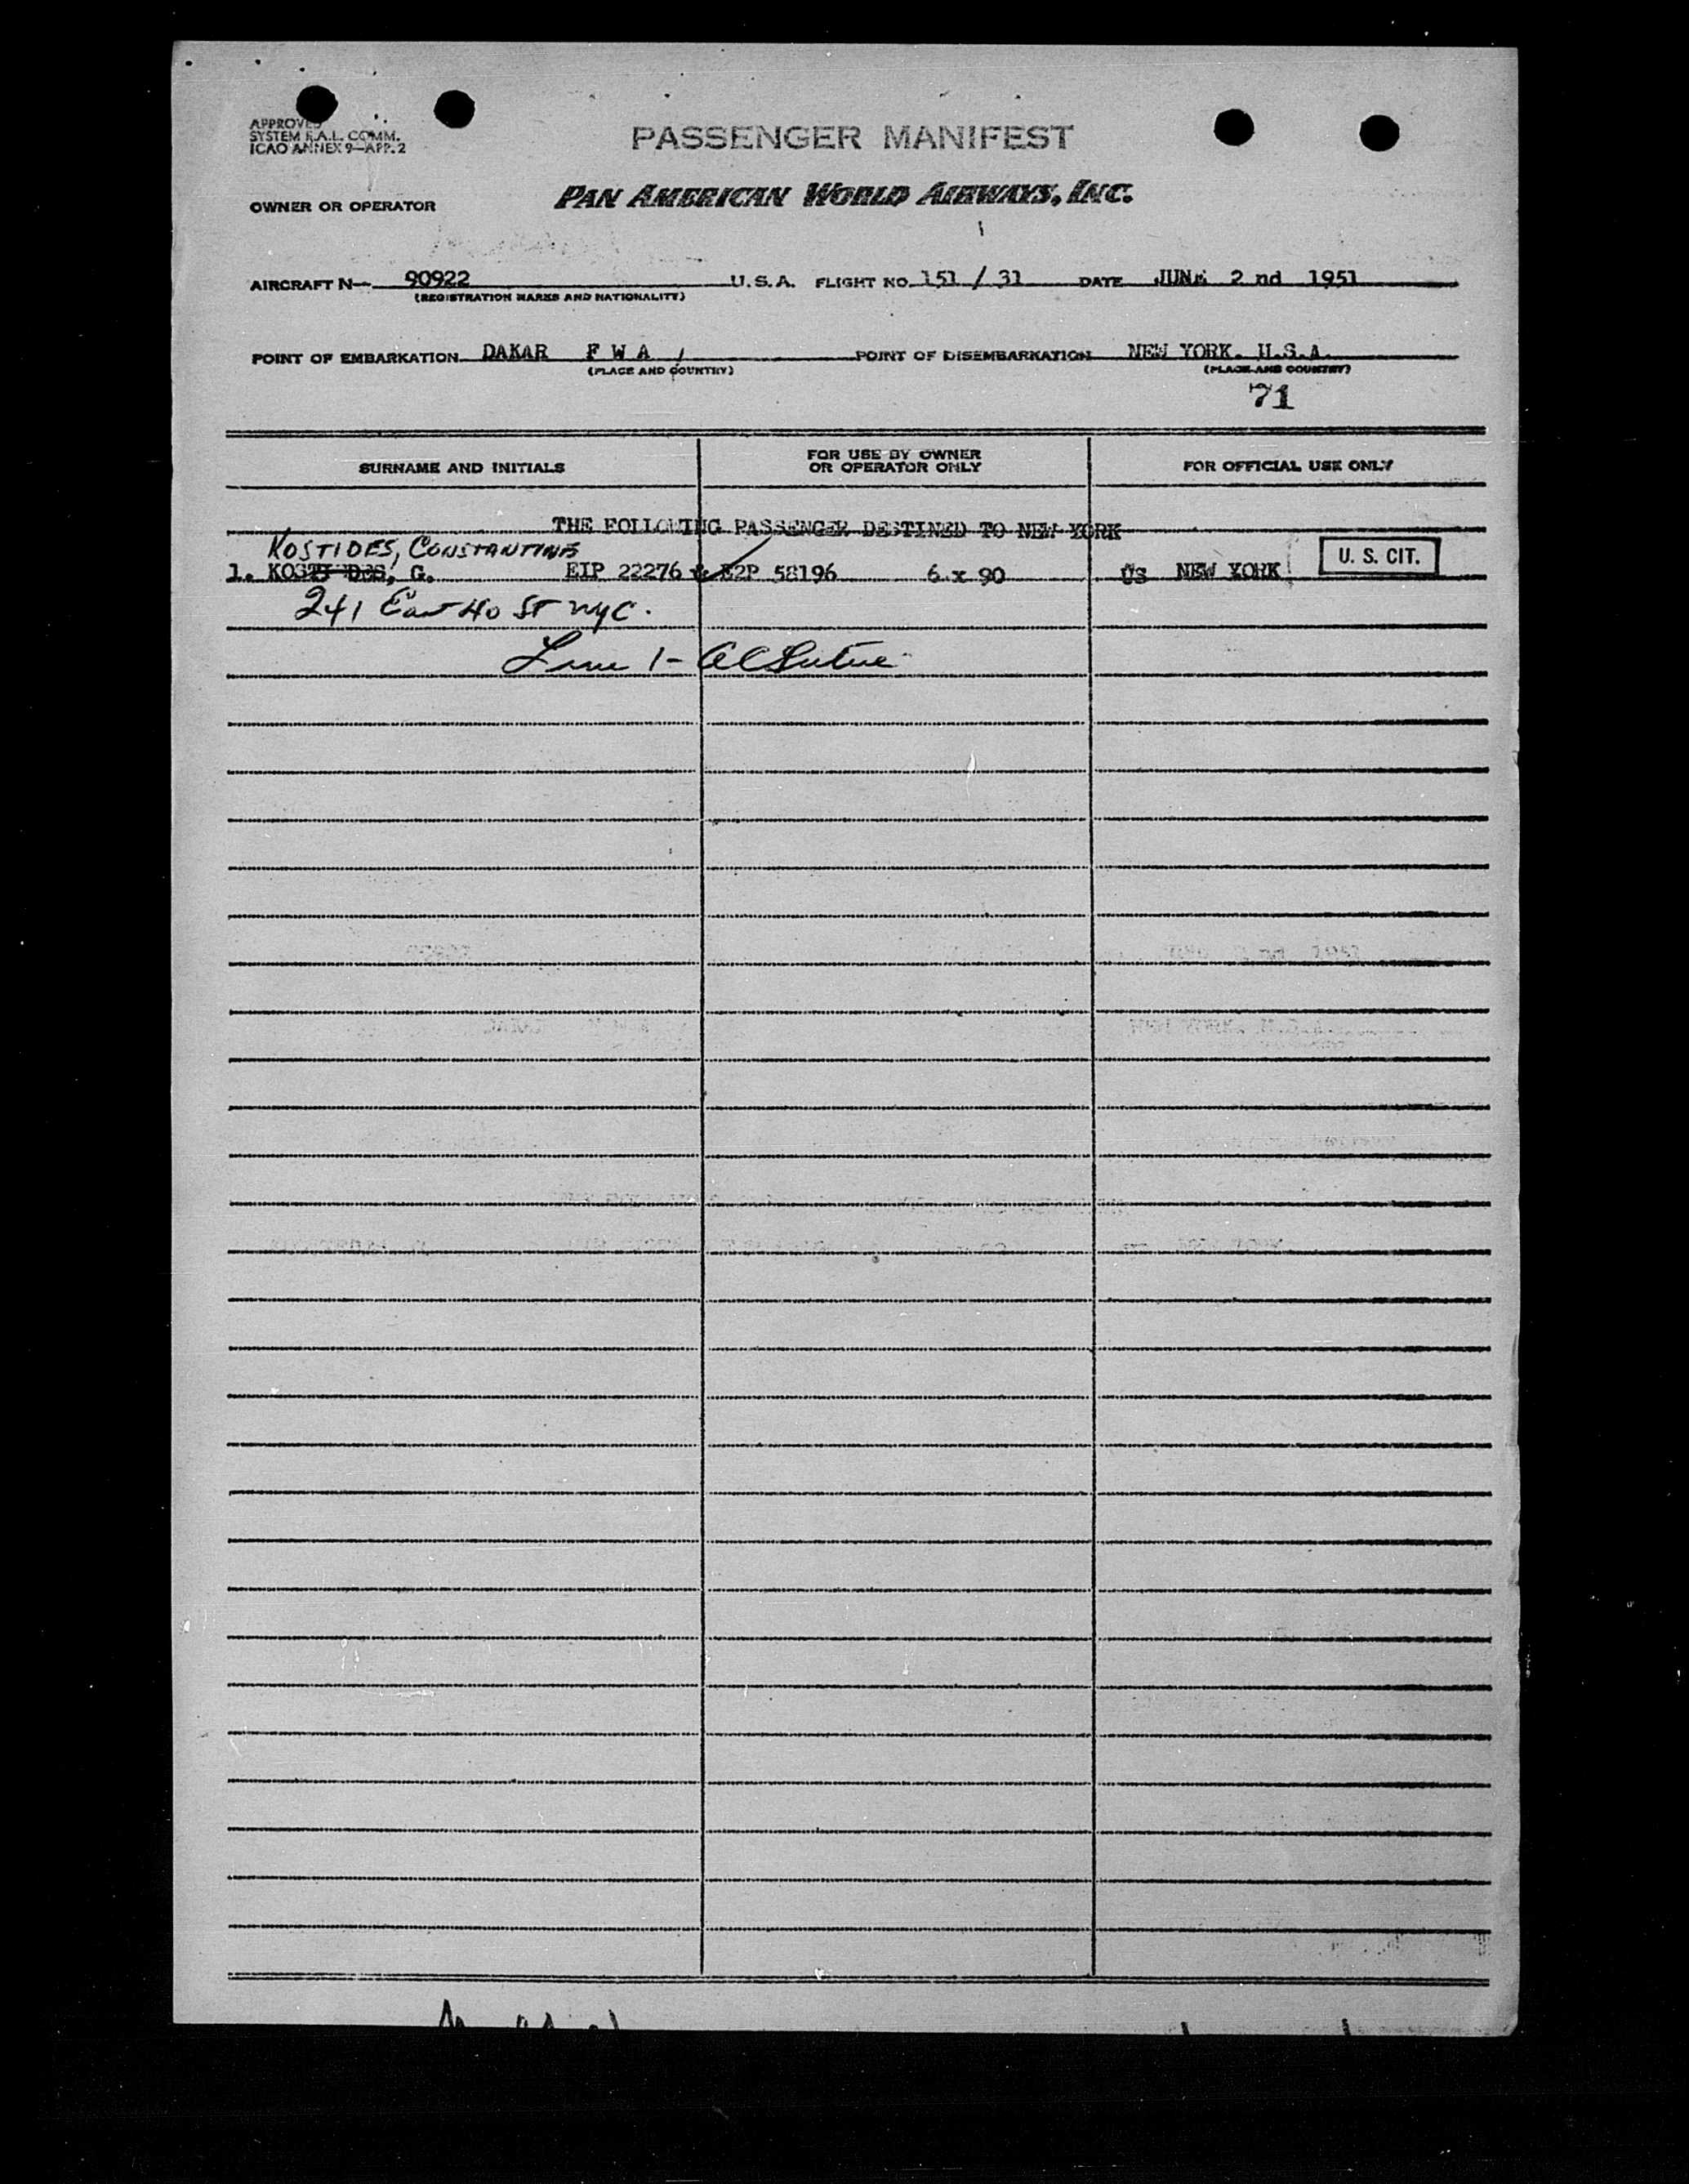 APPROVED
SYSTEM F.A.L. COMM.
ICAO ANNEX 9—APP. 2
PASSENGER MANIFEST
OWNER OR OPERATOR PAN AMERICAN WORLD AIRWAYS, INC.
AIRCRAFT N— 90922 U.S.A. FLIGHT NO. 151 / 31 DATE JUNE 2 nd 1951
(REGISTRATION MARKS AND NATIONALITY)
POINT OF EMBARKATION DAKAR F W A POINT OF DISEMBARKATION NEW YORK. U.S.A.
(PLACE AND COUNTRY) (PLACE AND COUNTRY)
71
SURNAME AND INITIALS FOR USE BY OWNER OR OPERATOR ONLY FOR OFFICIAL USE ONLY
THE FOLLOWING PASSENGER DESTINED TO NEW YORK
KOSTIDES, CONSTANTINE
1. KOSTI DES, G. EIP 22276 & E2P 58196 6 x 90 US NEW YORK U. S. CIT.
241 East 40 ST NYC.
Line 1-